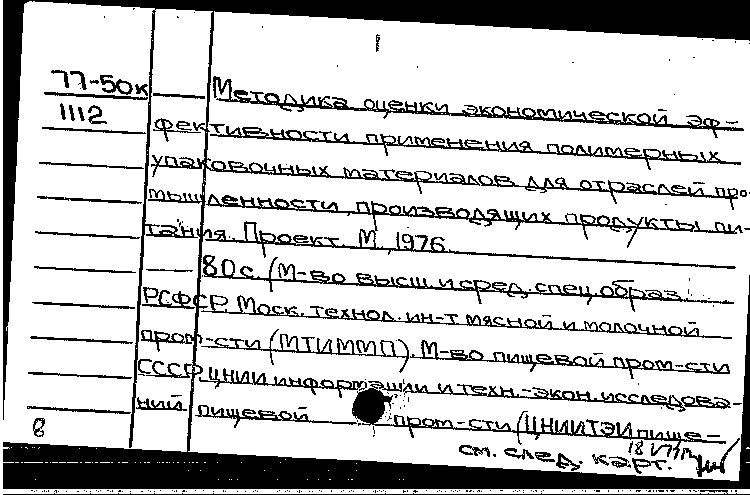 77-50к
1112
Методика оценки экономической эф-
фективности применения полимерных
упаковочных материалов для отраслей про-
мышленности, производящих продукты пи-
тания. Проект. М., 1976.
80с. (М-во высш. и сред. спец. образ.
РСФСР. Моск. технол. ин-т мясной и молочной
пром-сти (МТИММП). М-во пищевой пром-сти
СССР. ЦНИИ информации и техн.-экон. исследова-
ний пищевой пром-сти (ЦНИИТЭИпище-
см. след. карт.
8